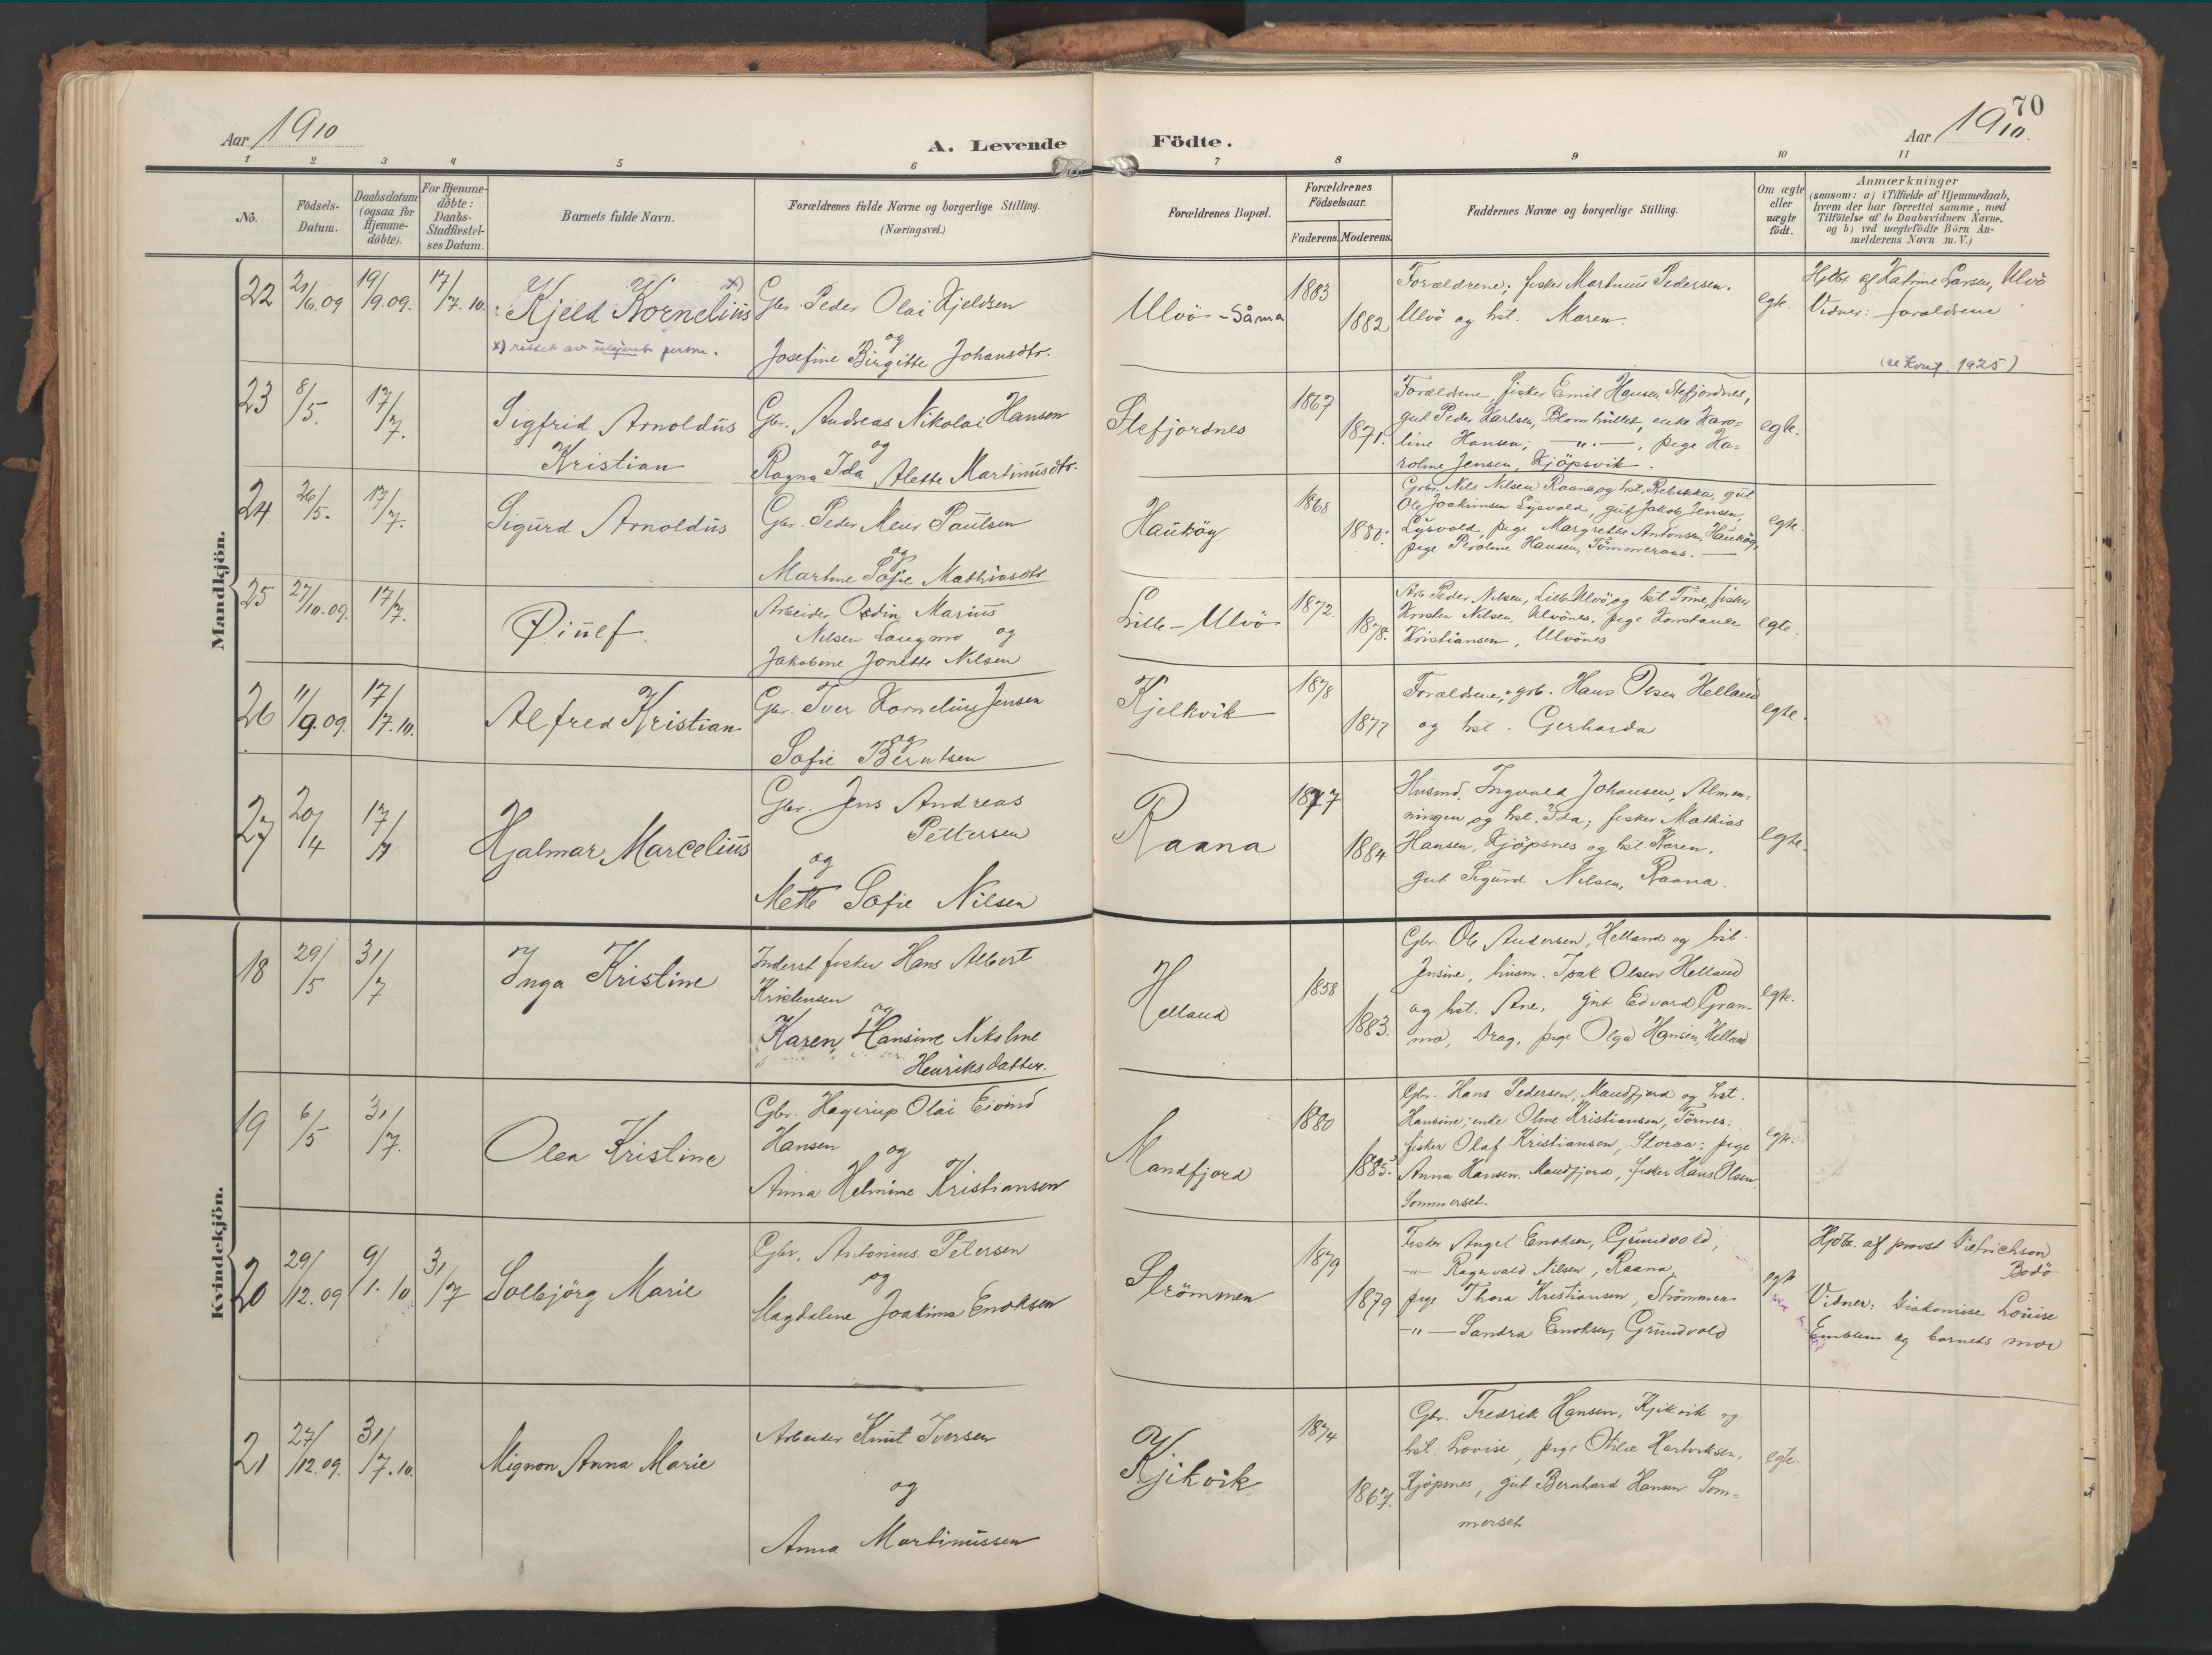 70
Aar 1910
A. Levende
Födte.
Aar 1910.
1 2 3 4 5 6 7 8 9 10 11
No.
Födsels-
Datum.
Daabsdatum
(ogsaa for
Hjemme-
döbte).
For Hjemme-
döbte:
Daabs-
Stadfæstel-
ses Datum.
Barnets fulde Navn.
Forældrenes fulde Navne og borgerlige Stilling.
(Næringsvei.)
Forældrenes Bopæl.
Forældrenes
Födselsaar.
Faderens. Moderens.
Faddernes Navne og borgerlige Stilling.
Om ægte
eller
uægte
födt.
Anmærkninger
(saasom: a) i Tilfælde af Hjemmedaab,
hvem der har forrettet samme, med
Tilföielse af to Daabsvidners Navne.
og b) ved uægtefödte Börn An-
melderens Navn m. V.)
Mandkjön.
22 21/6.09 19/9.09. 17/7.10.
Kjeld Kornelius x)
x) rettet av person.
Gbr. Peder Olai Kjeldsen
og
Josefine Birgitte Johansdtr.
Ulvö - Såma
1883
1882
Forældrene; fisker Martinus Pedersen,
Ulvö og hst. Maren.
egte.
Hjdbt af Katrine Larsen, Ulvö
Vidner: forældrene
(se konf. 1925)
23 8/5. 17/7.
Sigfrid Arnoldus
Kristian
Gbr. Andreas Nikolai Hansen
og
Ragna Ida Alette Martinusdtr.
Stefjordnes
1867
1871.
Forældrene, fisker Emil Hansen, Stefjordnes,
gut Peder Karlsen, Blomhullet, enke Karo-
line Hansen; —"—, pige Ka-
roline Jensen, Kjöpsvik.
egte.
24 26/5. 17/7.
Sigurd Arnoldus
Gbr. Peder Meier Paulsen
og
Martine Sofie Mathiasdtr
Hauköy
1868
1880.
Gbr. Nils Nilsen Raana og hst. Rebekka, gut
Ole Joakimsen Lysvold, gut Jakob Jensen,
Lysvold, pige Margrethe Antonsen, Hauköy,
pige Peroline Hansen, Tömmeraas. —
egte.
25 27/10.09. 17/7.
Øinef.
Arbeider Odin Marius
Nilsen Langmo og
Jakobine Jonette Nilsen
Lille - Ulvö
1872.
1878.
Arb. Peder Nilsen, Lille Ulvö, og hst Trine, fisker
Kristen Nilsen, Ulvönes, pige Konstance
Kristiansen, Ulvönes
egte.
26 11/9.09. 17/7.10.
Alfred Kristian
Gbr. Iver Kornelius Jensen
og
Sofie Berntsen
Kjelkvik
1878
1877
Forældrene; grb. Hans Olsen Helland
og hst. Gerharda
egte.
27 20/4 17/7
Hjalmar Marcelius
Gbr. Jens Andreas
Pettersen
og
Mette Sofie Nilsen
Raana
1877
1884
Husmd. Ingvald Johansen, Almen-
ningen og hst. Ida; fisker Mathias
Hansen, Kjöpsnes og hst. Karen,
gut Sigurd Nilsen, Raana.
egte.
Kvindekjön.
18 29/5 31/7
Inga Kristine
Inderst fisker Hans Albert
Kristensen
og
Karen Hansine Nikoline
Henriksdatter.
Helland
1858
1883.
Gbr. Ole Andersen, Helland og hst.
Jensine, husm. Isak Olsen Helland
og hst. Ane, gut Edvard Gram-
mo, Drag, pige Olga Hansen, Helland
egte.
19 6/5 31/7.
Olea Kristine
Gbr. Hagerup Olai Eivind
Hansen og
Anna Helmine Kristiansen
Mandfjord
1880
1885.
Gbr. Hans Pedersen, Mandfjord og hst.
Hansine; enke Oline Kristiansen, Törnes;
fisker Olaf Kristiansen, Storaa; pige
Anna Hansen, Mandfjord, fisker Hans Olsen,
Sommerset.
egte.
20 29/12.09 9/1.10 31/7
Solbjörg Marie
Gbr. Antonius Petersen
og
Magdalene Joakima Enoksen
Strömmen
1879
1879
Fisker Angel Enoksen, Grundvold,
—"— Ragnvald Nilsen, Raana,
pige Thora Kristiansen, Strömmen
—"— Sandra Enoksen, Grundvold
egte
Hjdbt. af provst Dietrichson
Bodö
Vidner: diakonisse Louise
Emblem og barnets mor
21 27/12.09. 31/7.10.
Mignon Anna Marie
Arbeider Knut Iversen
og
Anna Martinussen
Kjikvik
1874
1867.
Gbr. Fredrik Hansen, Kjikvik og
hst. Lovise, pige Otilie Hartviksen,
Kjöpsnes, gut Bernhard Hansen Som-
merset
egte.